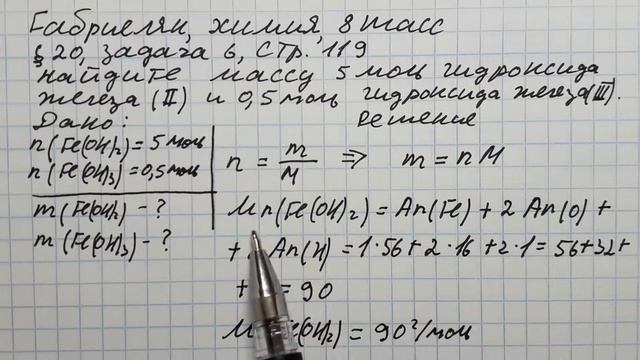 Габриелян, химия, 8 класс
§ 20, задача 6, стр. 119
найдите массу 5 моль гидроксида
железа (II) и 0,5 моль гидроксида железа (III).
Дано: Решение
n(Fe(OH)₂) = 5 моль
n(Fe(OH)₃) = 0,5 моль
m(Fe(OH)₂) - ?
m(Fe(OH)₃) - ?
n = m/M ⇒ m = nM
Mr(Fe(OH)₂) = Ar(Fe) + 2 Ar(O) +
+ Ar(H) = 1·56 + 2·16 + 2·1 = 56+32+
+ = 90
(OH)₂) = 90 г/моль